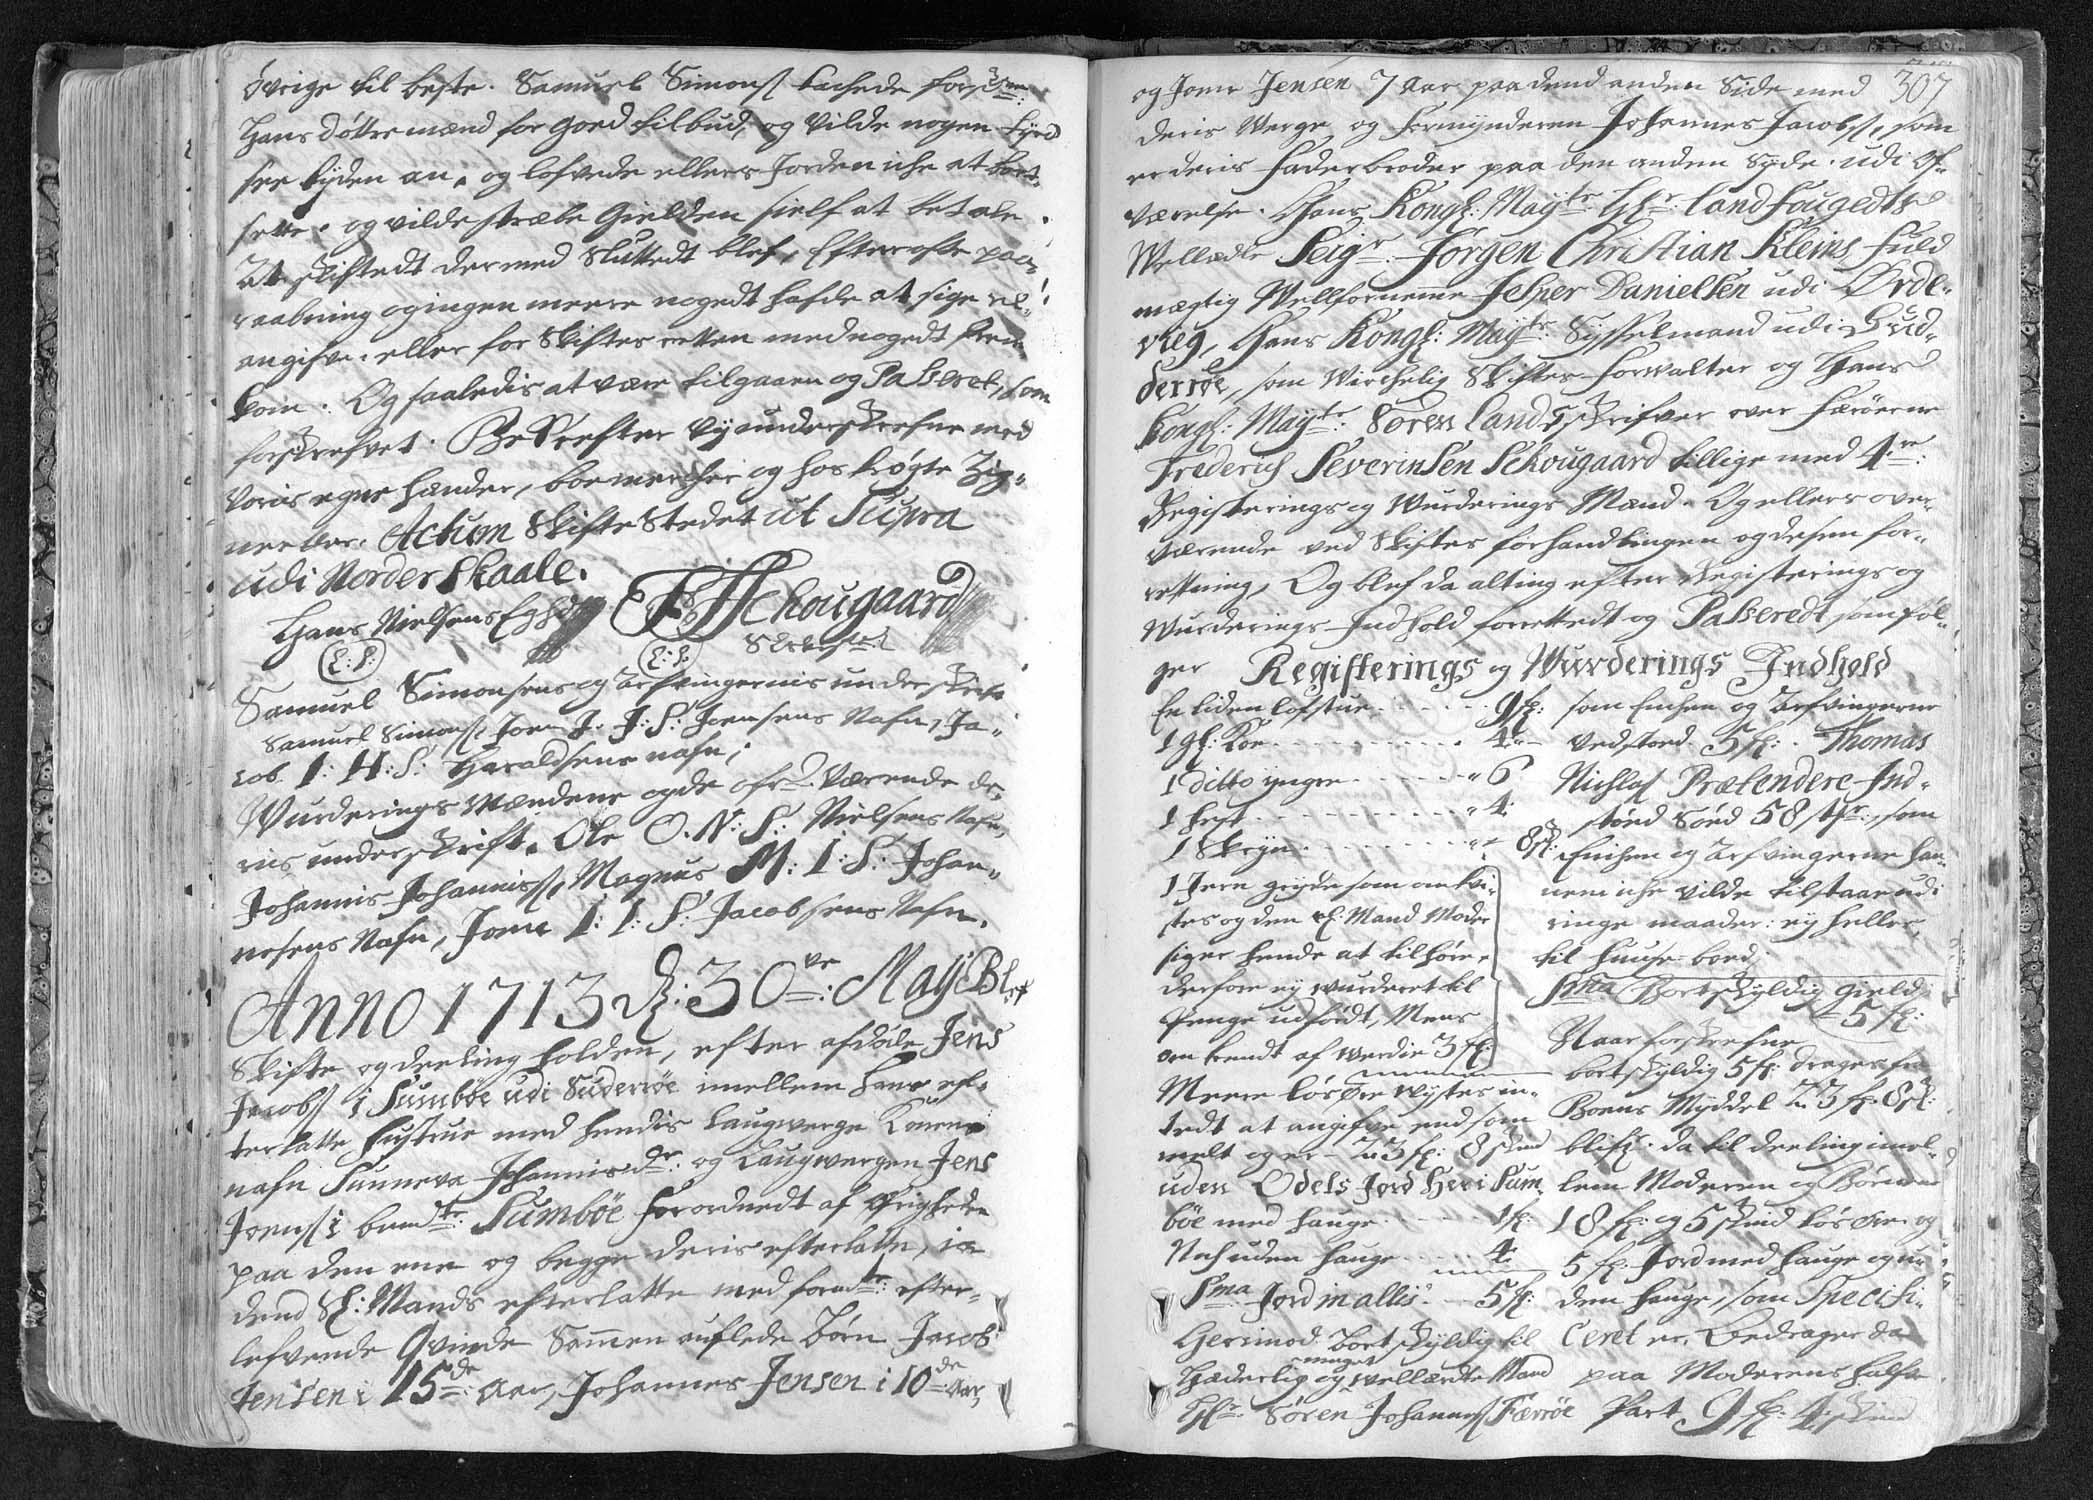 övrige til beste. Samuel Simonsß tachede forschr:ne
Hans döttre mænd for goed tilbud, og vilde nogen tyed
see tyden an, og lofvede ellers Jorden iche at bort-
sette. og vilde stræbe Gielden sielf at betale.
At skiftedt dermed Sluttedt blef, Efter ofte paa-
raabning og ingen meere nogedt hafde at sige el:
angifve. eller for Skiftes retten med nogedt frem
kom. Og saaledis at være tilgaaen og Passeret, som
forskrefvet. Bekrefter vy underskrefne med
voris egne hænder, boemercher og hoströgte Zig-
netter. Actum Skifte Stedet ut Supra
udi Norder Skaale.
Hans Nielsens FSSchougaard
(L: S:) (L: S:)
Samuel Simonsens og Arfvingernis underskrift
Samuel Simonsß, Joen J. J: S: Joensens Nafn, Ja-
cob I: H: S: Haraldsens nafn;
Wurderings Mændene og de ofr. Værende de-
ris underskrift. Ole O. N: S: Nielsens Nafn,
Johannis Johannisß, Magnus M: I: S: Johan-
nesens Nafn, Joen I: I: S: Jacobsens Nafn.
ANNO 1713 d: 30ve: May Blef
Skifte og deeling holden, efter afdöde Jens
Jacobß i Sumböe udi Suderröe imellem hans ef-
terlatte hustrue med hendis Laugverge Konens
nafn Sunneva Johannisdr: og Laugvergen Jens
Joensß i bemdte: Sumböe forordnedt af Övrigheden
paa den ene og begge deris efterlatte, ia
dend Sl: Mands efterlatte med forndte: efter-
lefvende Qvinde Sammen auflede börn Jacob
Jensen i 15de: Aar, Johannes Jensen i 10de: Aar,
307
og Joen Jensen 7 Aar paa dend anden Side med
deris Verge og formynderen Johannes Jacobß, som
er deris faderbroder paa den anden Syde. udi Of-
værelse. Hans Kongl: Mayts: Hr: Land fougedts
Wellædle Seigr. Jörgen Christian Kleins fuld
mægtig Wellforneme Jesper Danielsen udi Örde-
vieg, Hans Kongl: Mayts: Sysselmand udi Sud-
derröe, som Wirchelig Skiftes forvalter og Hans
Kongl: Mayts: Soren Landskrifver over Færöerne
Frederich Severinsen Schougaard tillige med 4re:
Registerings og Wurderings Mænd. Og ellers over-
værende ved Skiftes forhandlingen og desen for-
rettning, Og blef da alting efter Registerings og
Wurderings Indhold forrettedt og Passeredt som föl-
ger Registerings og Wurderings Indhold
En liden lofstue - - - - 9 fl:
1 gl: Koe - - - - 4:
1 ditto yngre - - - - " 6
1 hest - - - - " 4:
1 Skryn - - - - " " 8 sk:
1 Jern gryde som omtvi-
stes og den sl: Mand Moder
siger hende at tilhöre,
derfore ey wurderet til
Penge udfördt, Mens
om trendt af werdie 3 fl:
Meere lösöre vystes in-
tedt at angifve end som
melt og er - 23 fl: 8 skind
uden Odels Jord her i Sum-
böe med hauge - - - 1 fl:
Noch uden hauge - - - 4.
Sma Jord in allis - 5 fl:
Herimod bortskyldig til
Hæderlig og meget wellærde Mand
Hr: Sören Johannß Færröe
som Enchen og Arfvingerne
vedstoed 5 fl:. Thomas
Nichlaß Prætendere Ind-
stöed Söed 58 , som
Enchen og Arfvingerne han-
nem iche vilde tilstaae udi
ringe maader: ey heller
til huuse-boed
Sma Bortskyldig gield
- 5 fl:
Naar forskrefne
bortskyldig 5 fl: drages fra
Boens Myddel 23 fl: 8 sk:
blifr. da til deeling imel-
lem Moderen og Börnene
18 fl: og 5 skind lös öre og
5 fl: Jord med hauge og u-
den hauge, som Specifi-
ceret er. Bedrager da
paa Moderens halfve
Part 9 fl: 4 skind